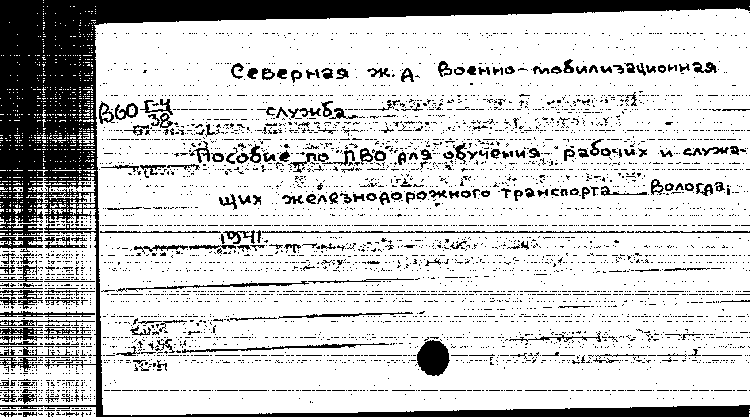 Северная ж.д. Военно-мобилизационная
В60 Г-4/38 служба.
Пособие по ПВО для обучения рабочих и служа-
щих железнодорожного транспорта. Вологда,
1941.